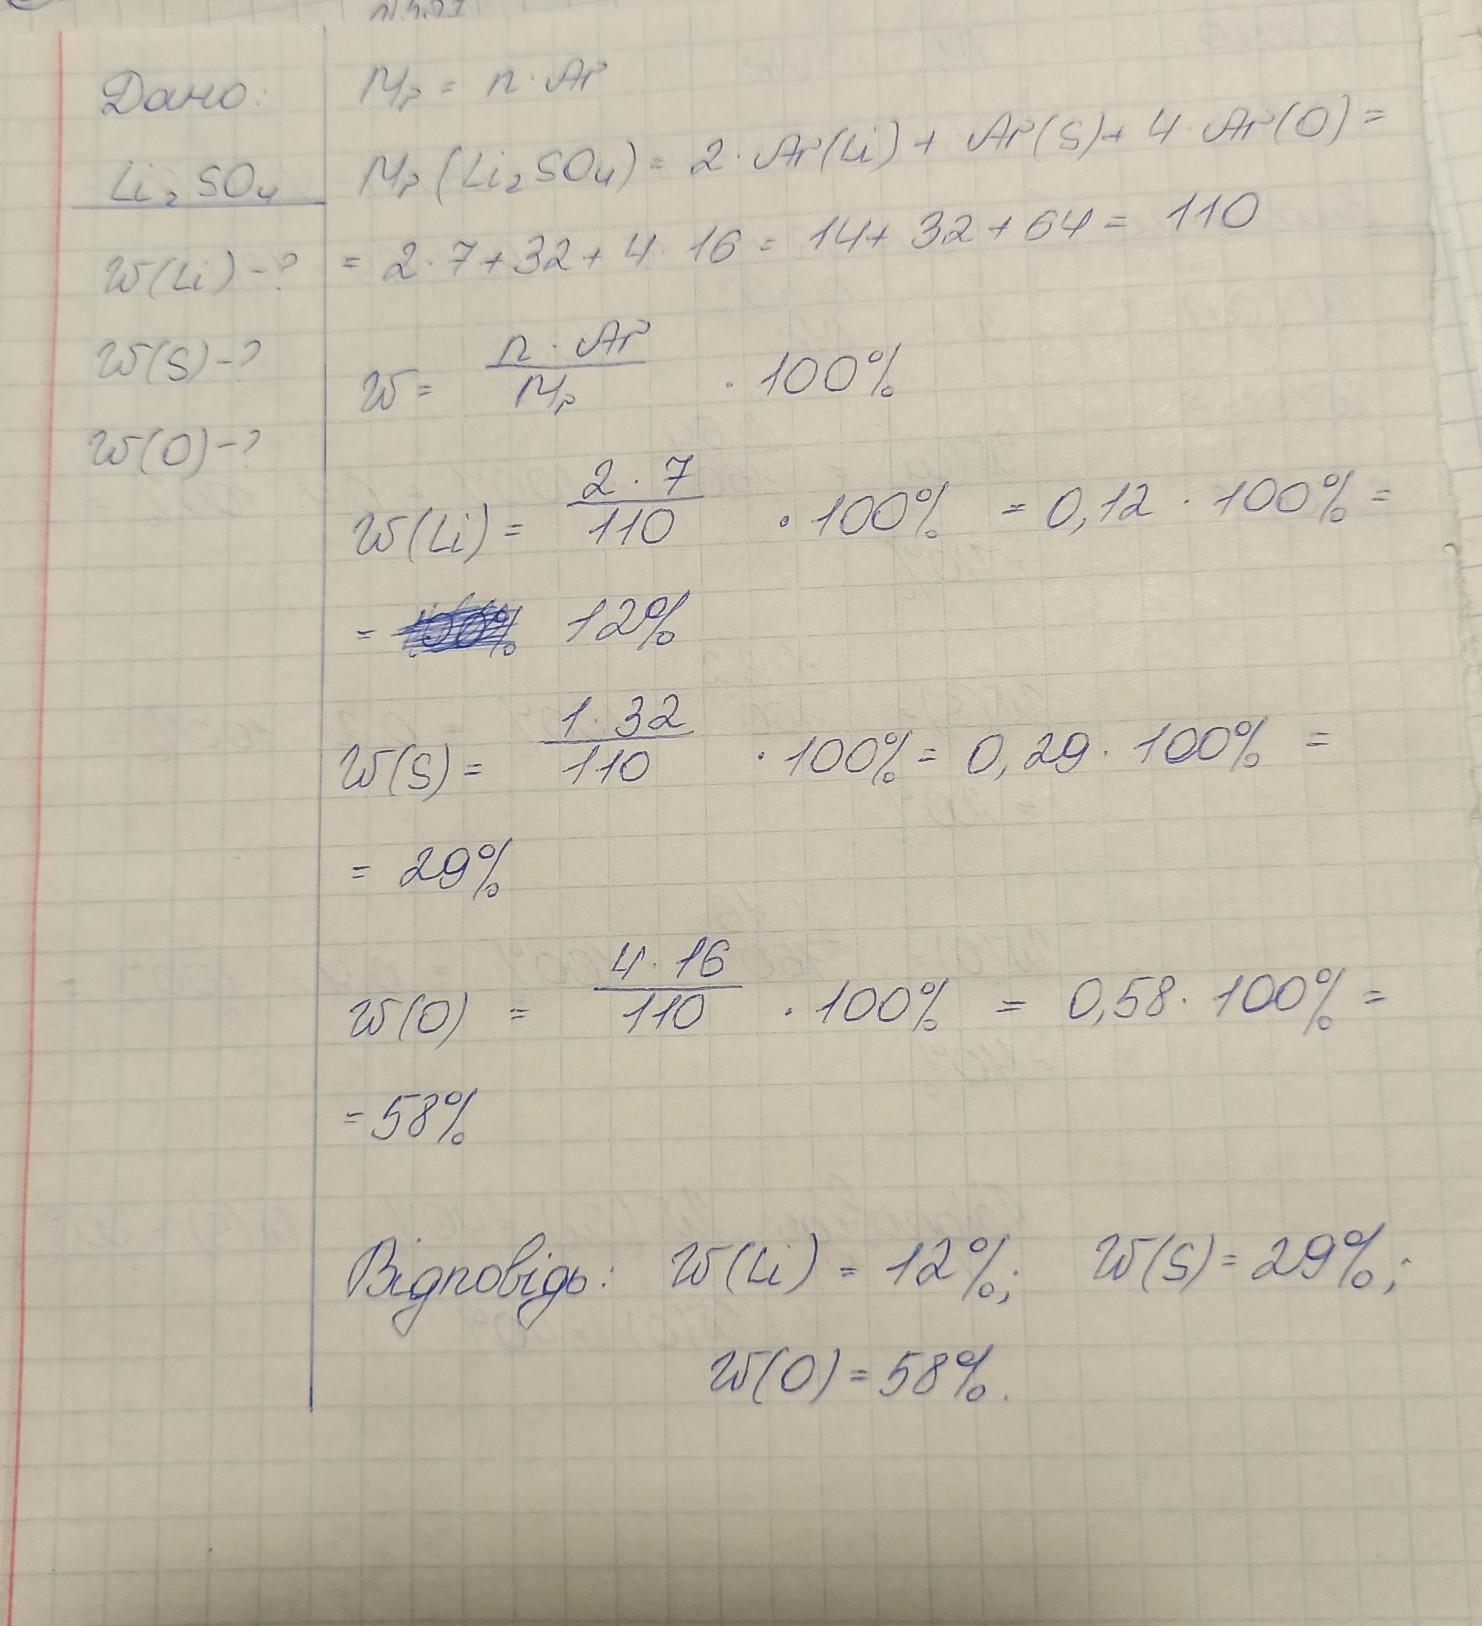 Дано:
Li₂SO₄
W(Li)-?
W(S)-?
W(O)-?
Mr = n · Ar
Mr(Li₂SO₄) = 2 · Ar(Li) + Ar(S) + 4 · Ar(O) =
= 2 · 7 + 32 + 4 · 16 = 14 + 32 + 64 = 110
W = n · Ar / Mr · 100%
W(Li) = 2 · 7 / 110 · 100% = 0,12 · 100% =
= 12%
W(S) = 1 · 32 / 110 · 100% = 0,29 · 100% =
= 29%
W(O) = 4 · 16 / 110 · 100% = 0,58 · 100% =
= 58%
Відповідь: W(Li) = 12%; W(S) = 29%;
W(O) = 58%.